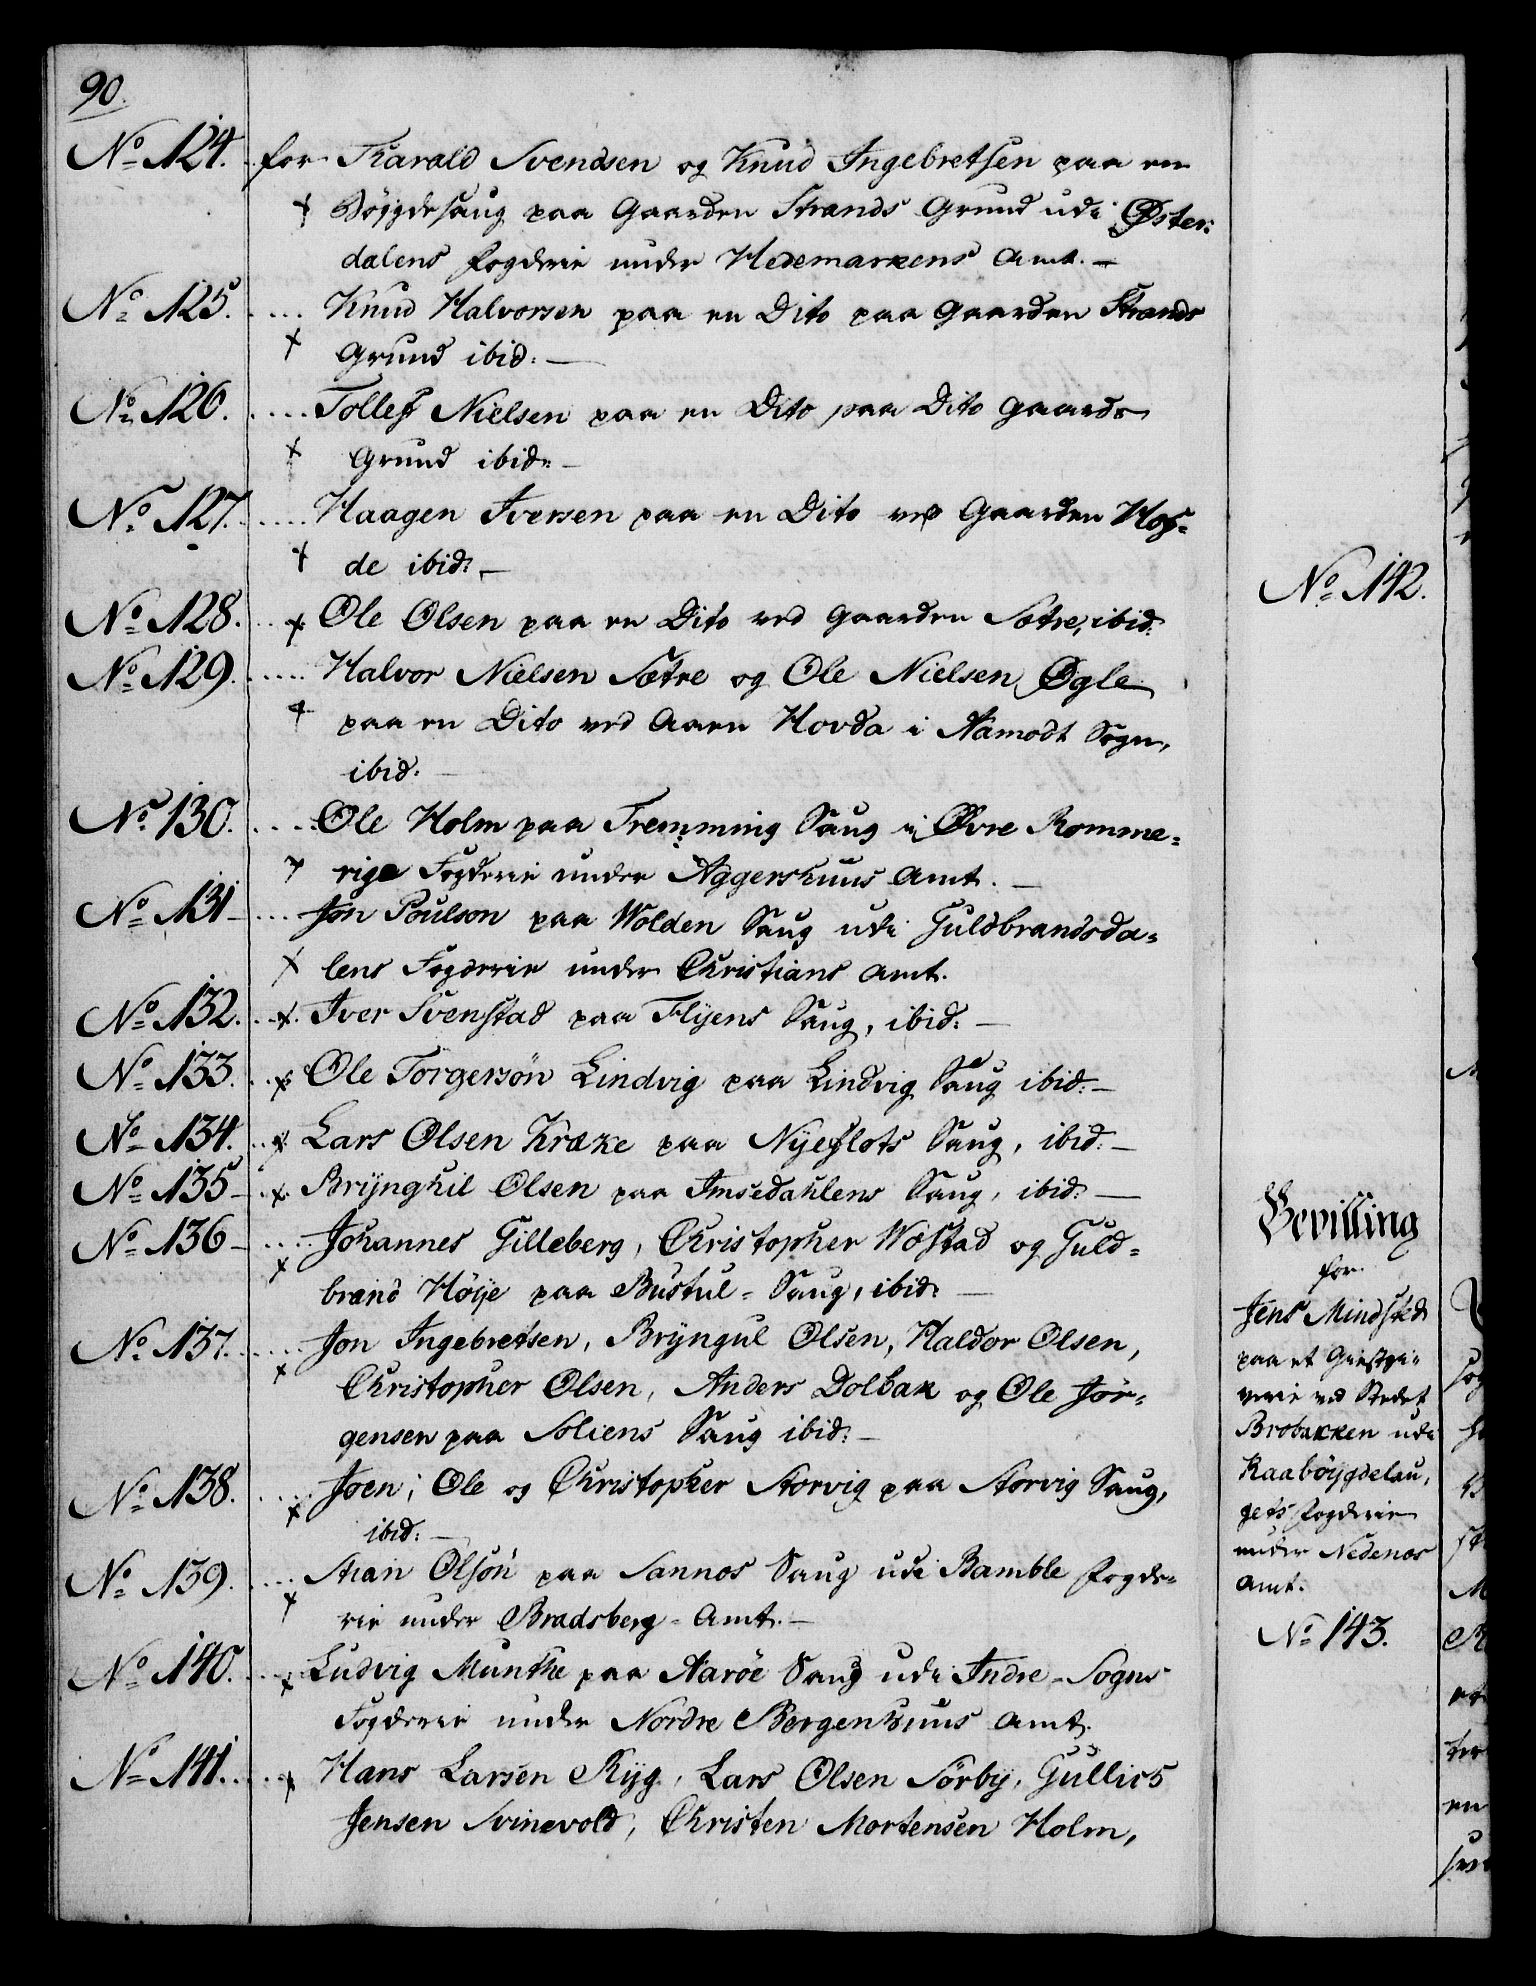 90.
No 124. for Harald Svendsen og Knud Ingebretsen paa en
+ Böygdesaug paa Gaarden Strands Grund udi Øster:
dalens Fogderie under Hedemarkens Amt. —
No 125. .... Knud Halvorsen paa en Dito paa Gaarden Strands
+ Grund ibid: —
No 126. .... Tollef Nielsen paa en Dito paa Dito Gaards
+ Grund ibid: —
No 127. .... Haagen Iversen paa en Dito ved Gaarden Hof-
+ de ibid: —
No 128. .. + Ole Olsen paa en Dito ved Gaarden Sætre, ibid:
No 129. .... Halvor Nielsen Sætre og Ole Nielsen Øgle
+ paa en Dito ved Aaen Hovda i Aamodt Sogn,
ibid: —
No 130. .... Ole Holm paa Tremming Saug i Øvre Romme-
+ rige Fogderie under Aggershuus Amt. —
No 131 — ... Jon Poulson paa Wolden Saug udi Guldbrandsda-
+ lens Fogderie under Christians Amt.
No 132. .. +. Iver Svenstad paa Flyens Saug, ibid: —
No 133. .. + Ole Törgersön Lindvig paa Lindvig Saug ibid: —
No 134. .. + Lars Olsen Kræke paa Nyeflots Saug, ibid: —
No 135 — . +. Brÿnghil Olsen paa Imsedahlens Saug, ibid: —
No 136 — .... Johannes Gilleberg, Christopher Wostad og Guld-
+ brand Höÿe paa Bustul- Saug, ibid: —
No 137. .... Jon Ingebretsen, Brÿngul Olsen, Haldor Olsen,
+ Christopher Olsen, Anders Dolbak og Ole Jör-
gensen paa Soliens Saug ibid: —
No 138. .... Joen, Ole og Christopher Storvig paa Storvig Saug,
+ ibid: —
No 139. .... Stian Olsön paa Sannos Saug udi Bamble Fogde-
+ rie under Bradsberg- Amt. —
No 140. ... + Ludvig Munthe paa Aaröe Saug udi Indre-Sogns
Fogderie under Nordre Bergenhuus Amt.
No 141. .... + Hans Larsen Ryg, Lars Olsen Sörby, Gullics
Jensen Svinevold, Christen Mortensen Holm,
No 142.
Bevilling
for
Jens Mindsted
paa et Giæstgi-
verie ved Stedet
Brobakken udi
Raaböygdelau,
gets Fogderie
under Nedenæs
Amt.
No 143.